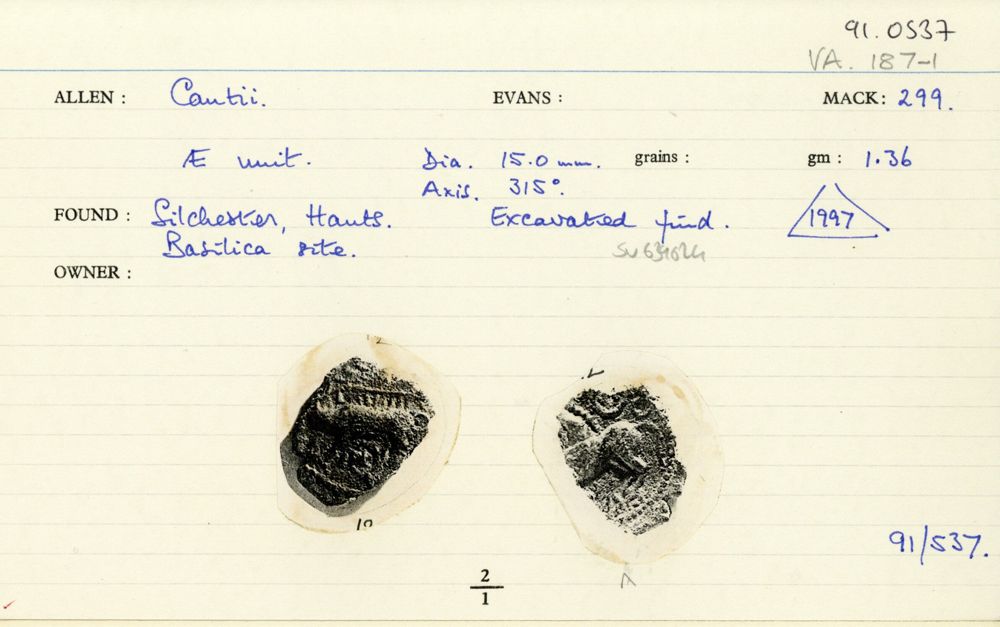 91.0537
VA. 187-1
ALLEN : Cantii. EVANS : MACK: 299.
Æ unit. Dia. 15.0 mm. grains : gm : 1.36
Axis. 315°.
FOUND : Silchester, Hants. Excavated find. 1997
Basilica site.
OWNER :
91/537.
2
1